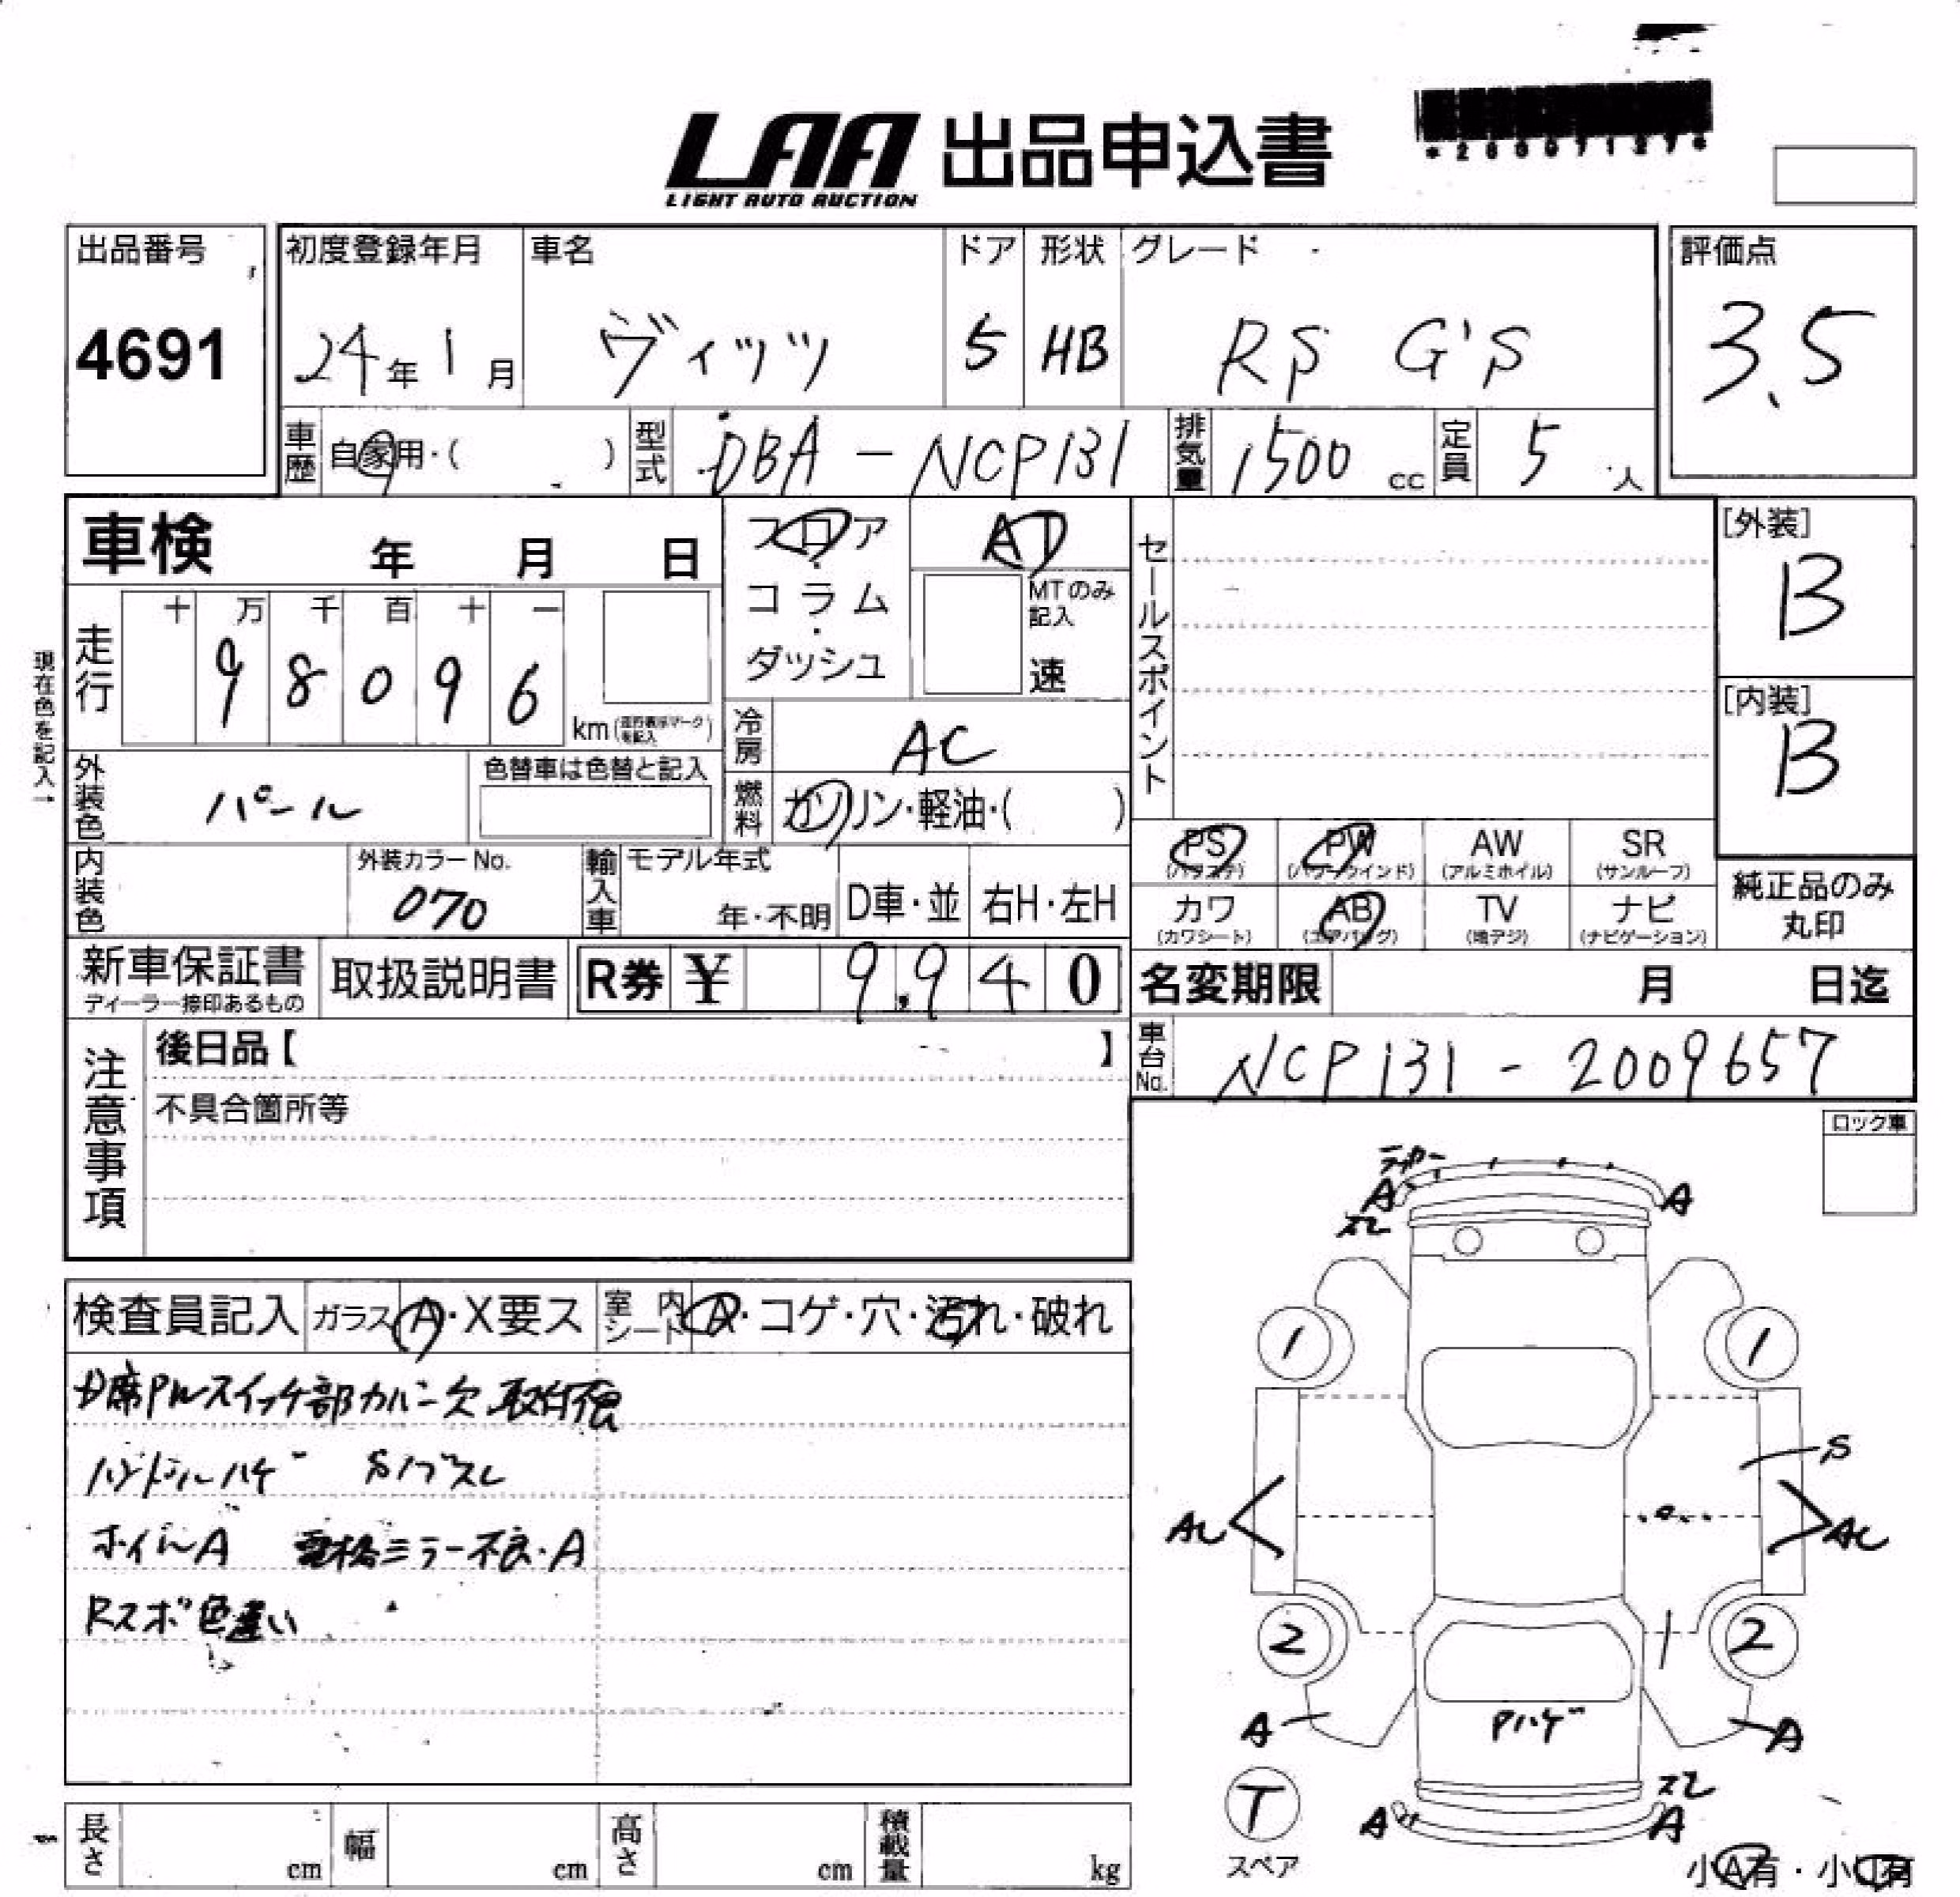 LAA 出品申込書
LIGHT AUTO AUCTION
出品番号 初度登録年月 車名 ドア 形状 グレード 評価点
4691 24年1月 ヴィッツ 5 HB RS G'S 3.5
車歴 自家用・( ) 型式 DBA-NCP131 排気量 1500cc 定員 5人
車検 年 月 日
フロア・コラム・ダッシュ
AT
MTのみ記入
速
セールスポイント
[外装]
B
[内装]
B
現在色を記入→
走行 十 万 千 百 十 一
9 8 0 9 6 km
冷房 AC
外装色 パール 色替車は色替と記入
燃料 ガソリン・軽油・( )
PS (パワステ) PW (パワーウインド) AW (アルミホイル) SR (サンルーフ)
カワ (カワシート) AB (エアバッグ) TV (地デジ) ナビ (ナビゲーション)
純正品のみ丸印
内装色 外装カラーNo. 070 輸入車 モデル年式 年・不明 D車・並 右H・左H
新車保証書 ディーラー捺印あるもの 取扱説明書 R券 ¥ 9,940
名変期限 月 日迄
車台No. NCP131-2009657
注意事項 後日品【 】
不具合箇所等
ロック車
検査員記入 ガラス A・X要ス 室内シート A・コゲ・穴・汚れ・破れ
D席PWスイッチ部カバー欠 取付穴
ハンドルハゲ Sノブスレ
ホイルA 電格ミラー不良・A
Rスポ色違い
A
スレ
A
1 1
S
AC AC
2 2
A A
Pハゲ
スレ
A A
T
スペア
長さ cm 幅 cm 高さ cm 積載量 kg
小A有・小U有